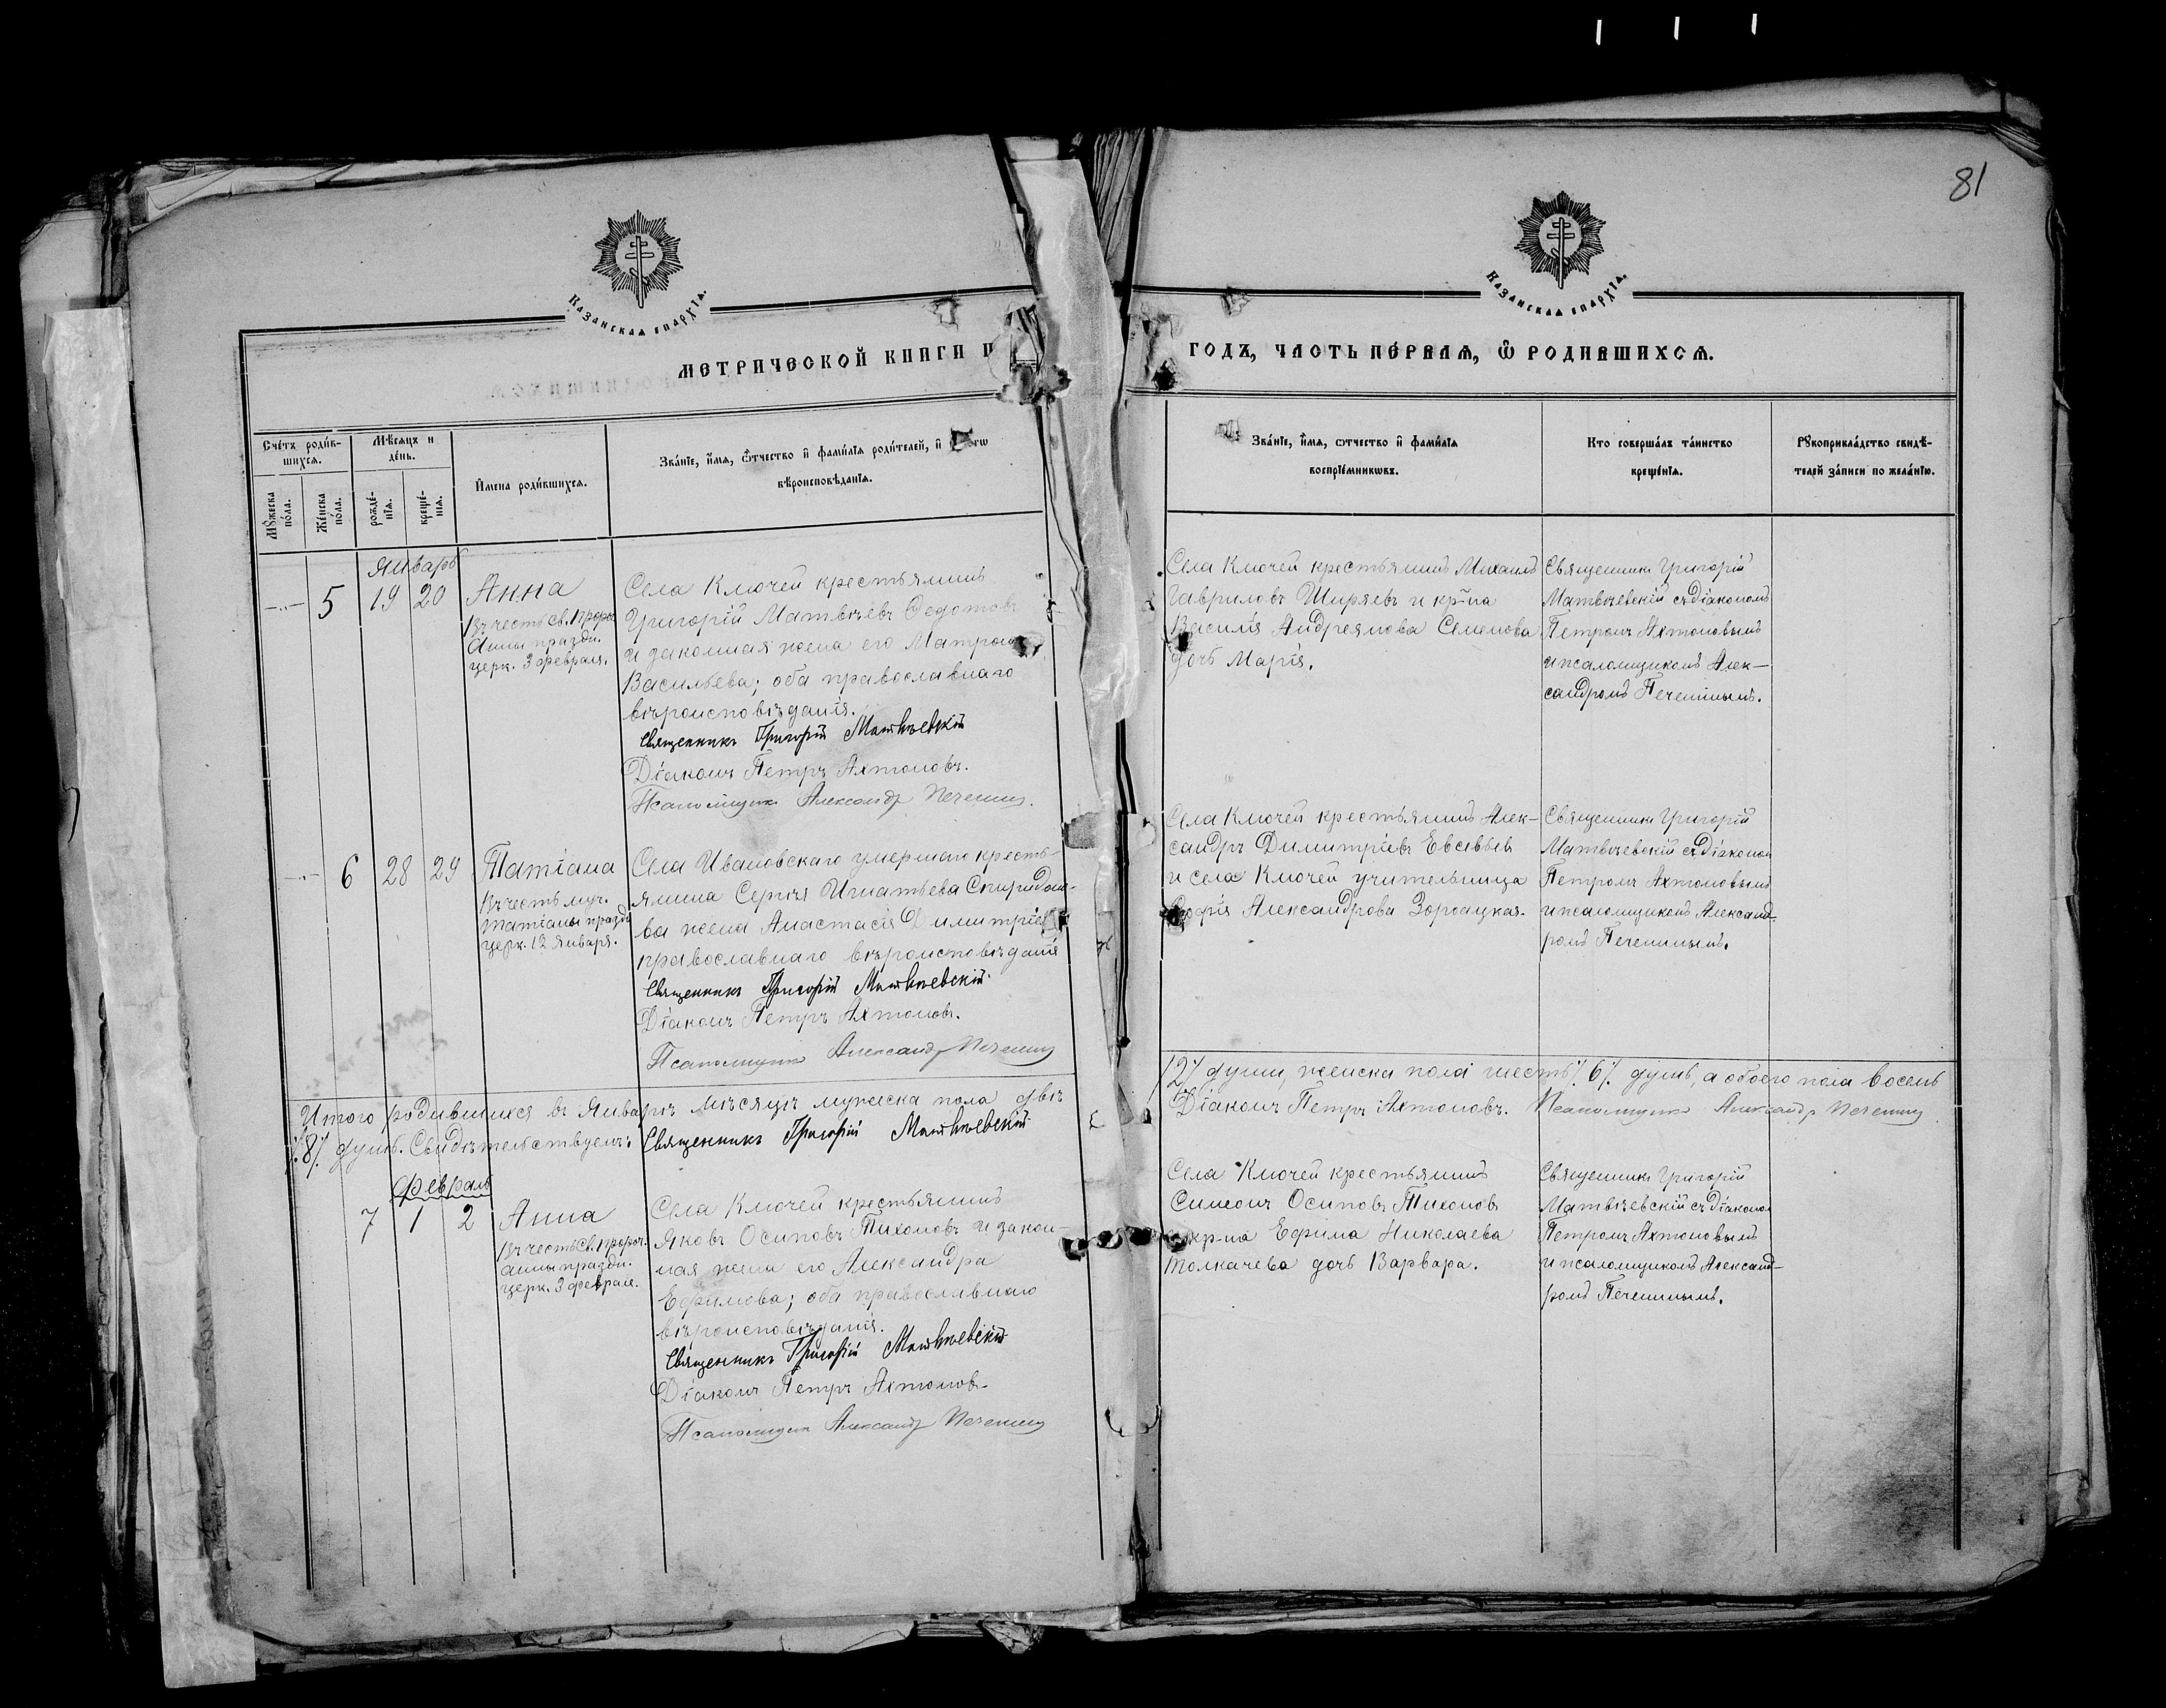 81
Казанская епархїа.
Казанская епархїа.
МЕТРИЧЕСКОЙ КНИГИ
ГОДЪ, ЧАСТЬ ПЕ́РВАЯ, Ѿ РОДИВШИХСЯ.
Сче́тъ роди́в-
шихся.
Мѣ́сяцъ и
де́нь.
Мꙋ́жеска
по́ла.
Же́нска
по́ла.
рожде́-
нїя.
креще́-
нїя.
И҆мена роди́вшихся.
Зва́нїе, и҆́мя, ѻ҆́тчество и҆ фами́лїя роди́телей, и҆
вѣроисповѣ́данїя.
Зва́нїе, и҆́мя, ѻтчество и҆ фами́лїя
воспрїе́мникѡвъ.
Кто соверша́лъ та́инство
креще́нїя.
Рꙋкоприкла́дство свидѣ́-
телей за́писи по жела́нїю.
Январь
5 19 20 Анна
Въ честь св. Прор.
Анны праздн.
церк. 3 февраля.
Села Ключей крестьянинъ
Григорій Матвѣевъ Ѳедотовъ
и законная жена его Матрона
Васильева; оба православнаго
вѣроисповѣданія.
Священникъ Григорій Матвѣевскій
Діаконъ Петръ Ахтоновъ.
Псаломщикъ Александръ Печенинъ.
Села Ключей крестьянинъ Михаилъ
Гавриловъ Ширяевъ и кр-на
Василія Андреянова Семенова
дочь Марія.
Священникъ Григорій
Матвѣевскій съ діакономъ
Петромъ Ахтоновымъ
и псаломщикомъ Алек-
сандромъ Печенинымъ.
6 28 29 Татіана
Въ честь муч.
Татіаны празд.
церк. 12 января.
Села Ивановскаго умершаго кресть-
янина Сергѣя Игнатьева Спиридоно-
ва жена Анастасія Димитріева
православнаго вѣроисповѣданія
Священникъ Григорій Матвѣевскій
Діаконъ Петръ Ахтоновъ.
Псаломщикъ Александръ Печенинъ
Села Ключей крестьянинъ Алек-
сандръ Димитріевъ Евсѣвьевъ
и села Ключей учительница
Софія Александрова
Священникъ Григорій
Матвѣевскій съ діакономъ
Петромъ Ахтоновымъ
и псаломщикомъ Александ-
ромъ Печенинымъ.
Итого родившихся въ Январѣ мѣсяцѣ мужеска пола двѣ
/2/ души, женска пола шесть /6/ душъ, а обоего пола восемь
/8/ душъ. Свидѣтельствуемъ: Священникъ Григорій Матвѣевскій
Діаконъ Петръ Ахтоновъ. Псаломщикъ Александръ Печенинъ
Февраль
7 1 2 Анна
Въ честь Св. Прор.
Анны праздн.
церк. 3 февраля.
Села Ключей крестьянинъ
Яковъ Осиповъ Тихоновъ и закон-
ная жена его Александра
Ефимова; оба православнаго
вѣроисповѣданія.
Священникъ Григорій Матвѣевскій
Діаконъ Петръ Ахтоновъ
Псаломщикъ Александръ Печенинъ
Села Ключей крестьянинъ
Симеонъ Осиповъ Тихоновъ
и кр-на Ефима Николаева
Толкачева дочь Варвара.
Священникъ Григорій
Матвѣевскій съ діакономъ
Петромъ Ахтоновымъ
и псаломщикомъ Александ-
ромъ Печенинымъ.